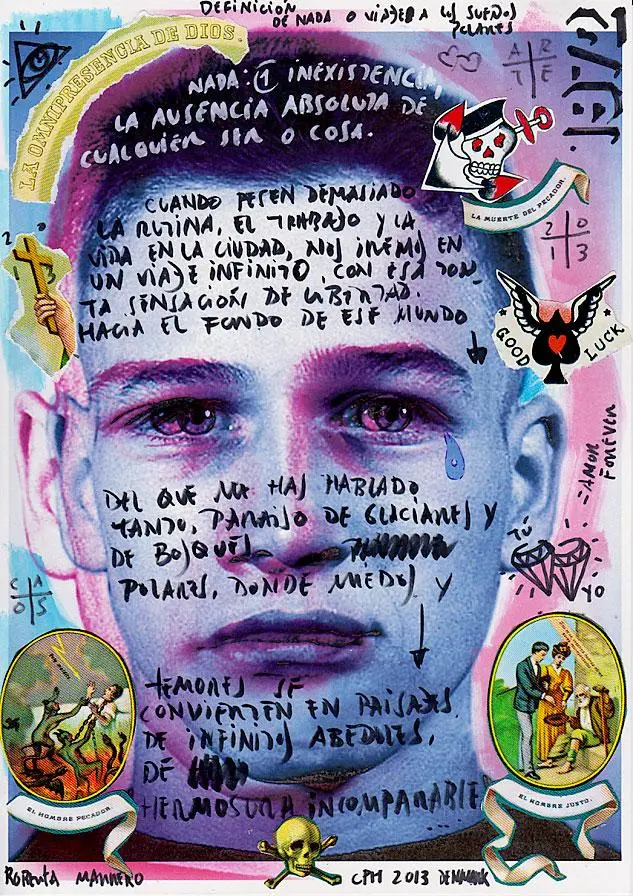 DEFINICIÓN
DE NADA O VIAJE A LOS SUEÑOS
POLARES
LA OMNIPRESENCIA DE DIOS.
A R
T E
NADA: 1 INEXISTENCIA,
LA AUSENCIA ABSOLUTA DE
CUALQUIER SER O COSA.
LA MUERTE DEL PECADOR.
2 0
1 3
2 0
1 3
CUANDO PESEN DEMASIADO
LA RUTINA, EL TRABAJO Y LA
VIDA EN LA CIUDAD, NOS IREMOS EN
UN VIAJE INFINITO, CON ESA TON
TA SENSACIÓN DE LIBERTAD.
HACIA EL FONDO DE ESE MUNDO
GOOD LUCK
DEL QUE ME HAS HABLADO
TANTO, PARAISO DE GLACIARES Y
DE BOSQUES
POLARES, DONDE MIEDOS Y
= AMOR
FOREVER
TÚ
YO
C A
O S
TEMORES SE
CONVIERTEN EN PAISAJES
DE INFINITOS ABEDULES,
DE
HERMOSURA INCOMPARABLE
EL HOMBRE PECADOR.
EL HOMBRE JUSTO.
ROBERTA MARRERO
CPH 2013 DENMARK